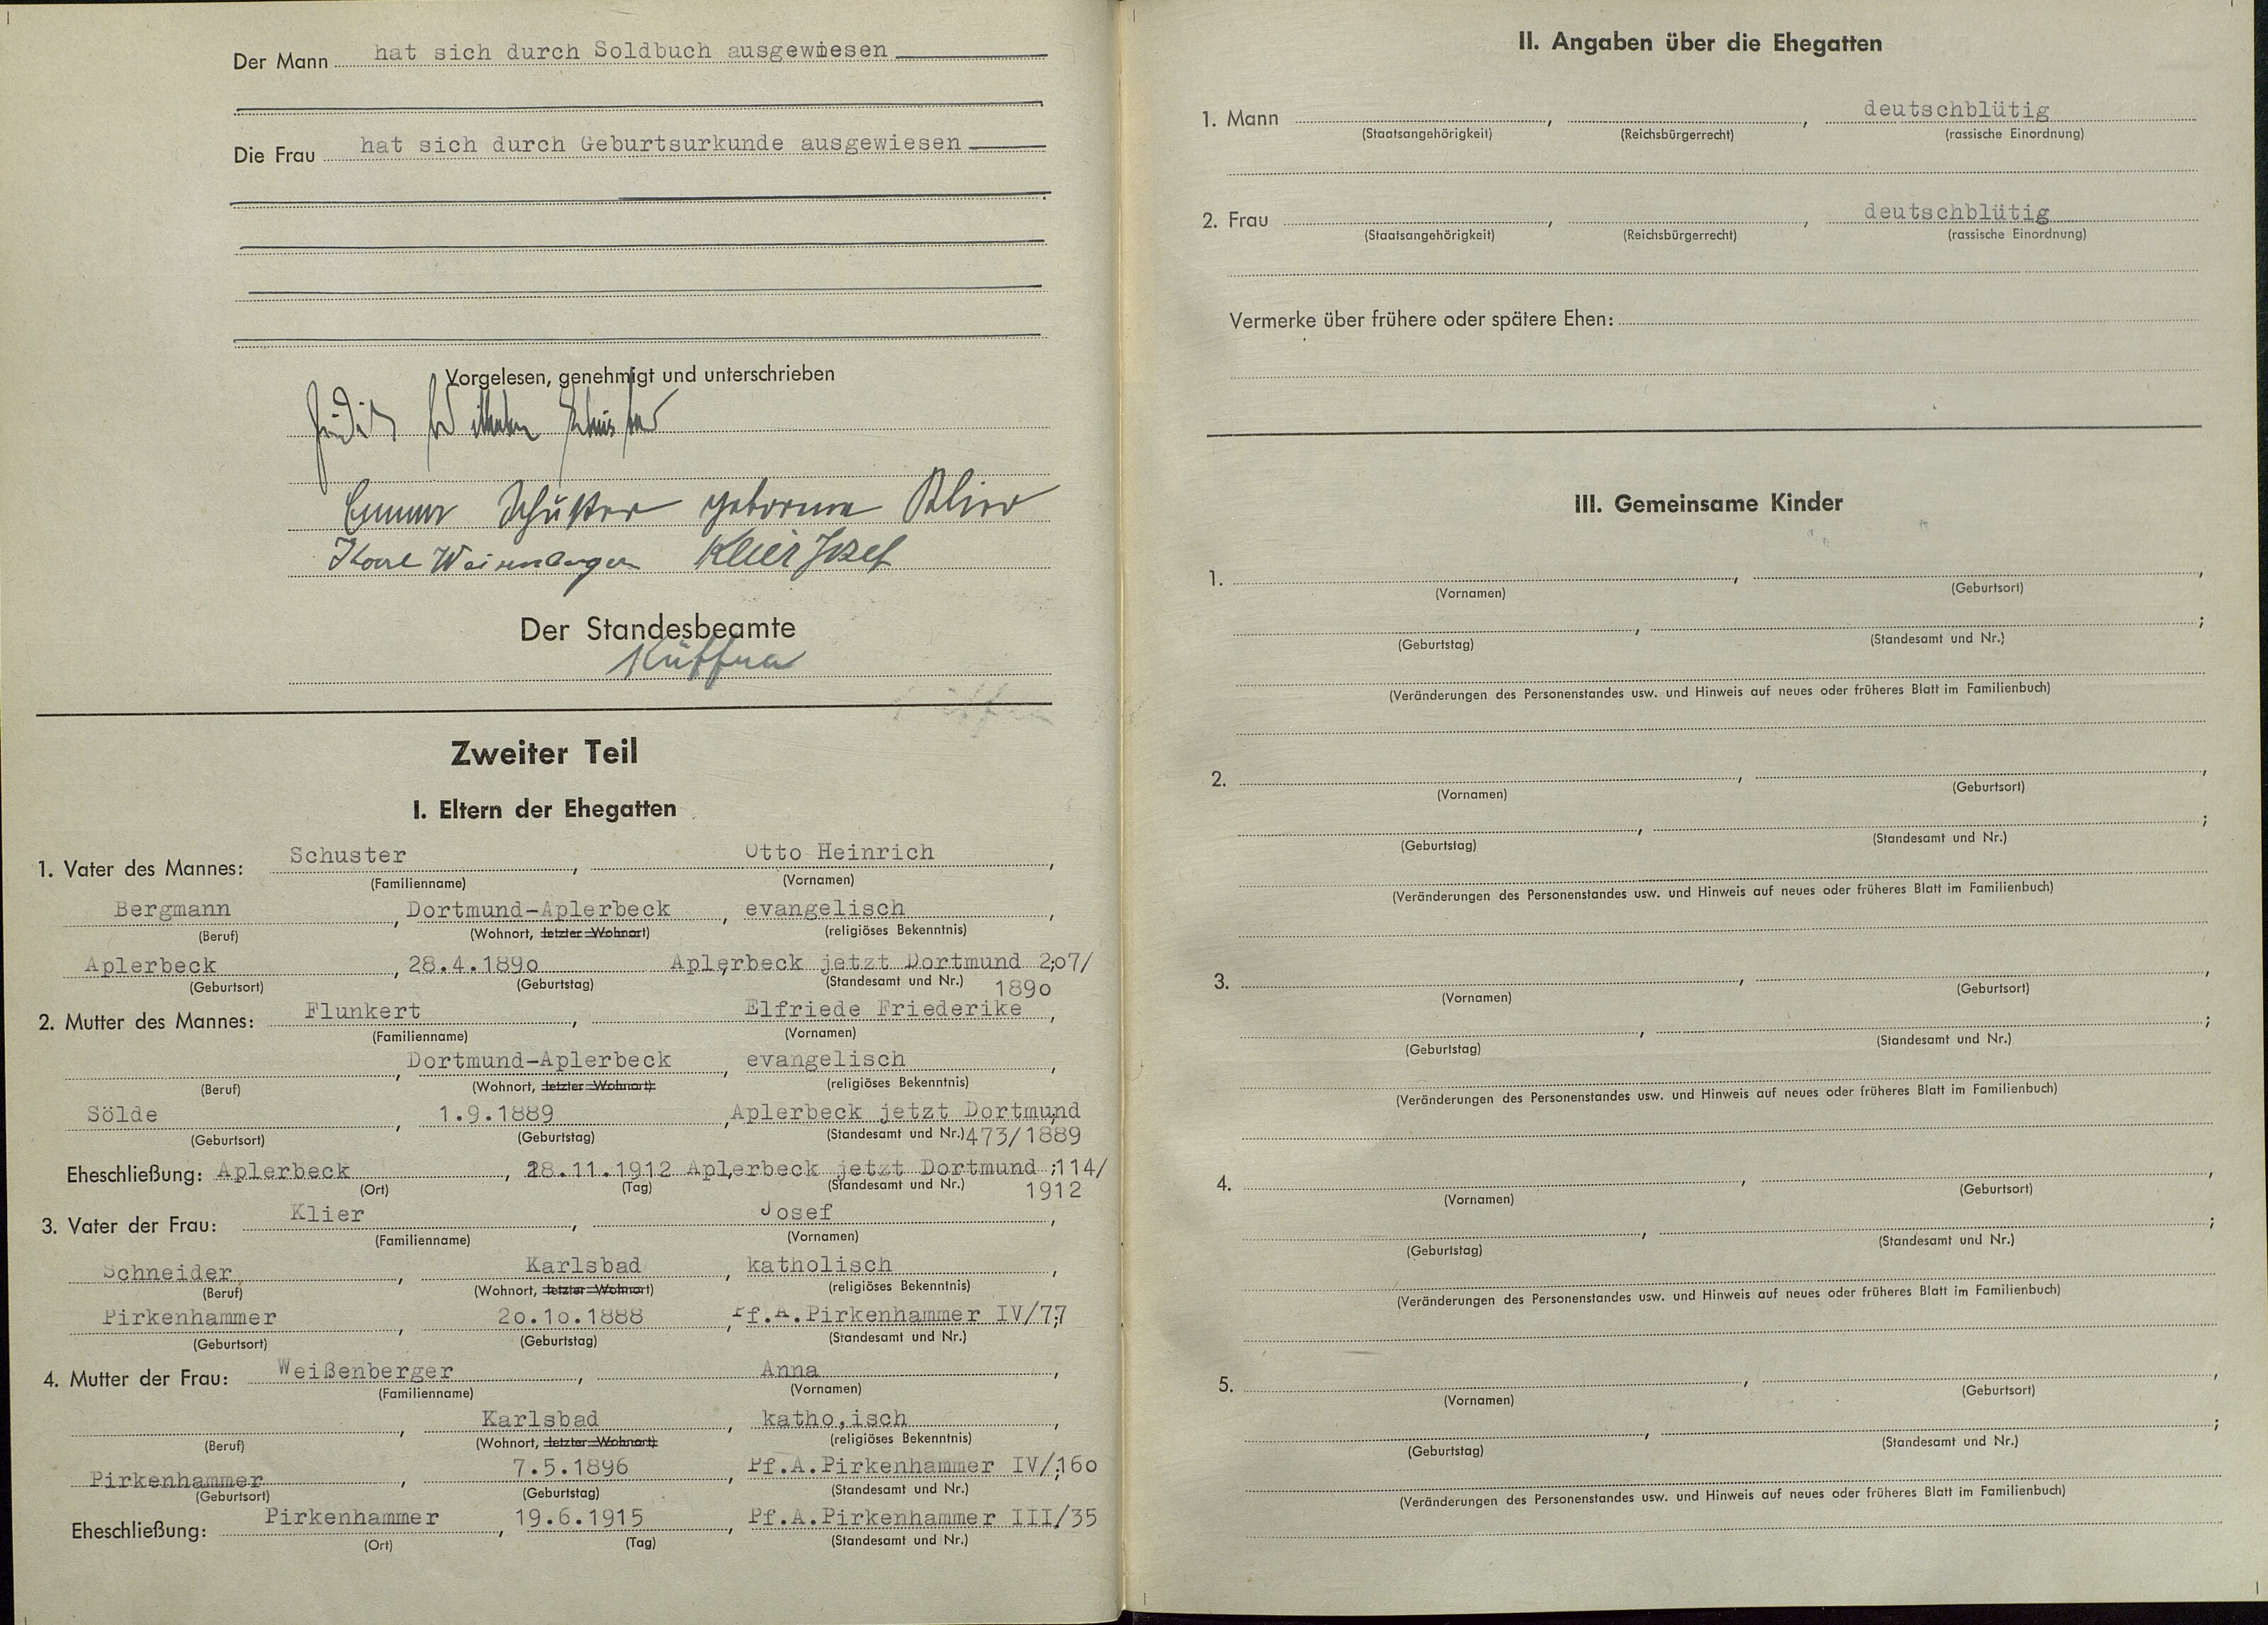 Der Mann hat sich durch Soldbuch ausgewiesen
Die Frau hat sich durch Geburtsurkunde ausgewiesen
Vorgelesen, genehmigt und unterschrieben
Wilhelm Schuster
Schuster geborene Klier
Karl Klier Josef
Der Standesbeamte
Zweiter Teil
I. Eltern der Ehegatten
1. Vater des Mannes: Schuster, Otto Heinrich,
(Familienname) (Vornamen)
Bergmann, Dortmund-Aplerbeck, evangelisch,
(Beruf) (Wohnort, letzter Wohnort) (religiöses Bekenntnis)
Aplerbeck, 28.4.189o Aplerbeck jetzt Dortmund 2;o7/
(Geburtsort) (Geburtstag) (Standesamt und Nr.) 189o
2. Mutter des Mannes: Flunkert, Elfriede Friederike,
(Familienname) (Vornamen)
, Dortmund-Aplerbeck, evangelisch,
(Beruf) (Wohnort, letzter Wohnort) (religiöses Bekenntnis)
Sölde, 1.9.1889, Aplerbeck jetzt Dortmund;
(Geburtsort) (Geburtstag) (Standesamt und Nr.) 473/1889
Eheschließung: Aplerbeck, 28.11.1912 Aplerbeck jetzt Dortmund ;114/
(Ort) (Tag) (Standesamt und Nr.) 1912
3. Vater der Frau: Klier, Josef,
(Familienname) (Vornamen)
Schneider, Karlsbad, katholisch,
(Beruf) (Wohnort, letzter Wohnort) (religiöses Bekenntnis)
Pirkenhammer, 2o.1o.1888, Pf.A.Pirkenhammer IV/77;
(Geburtsort) (Geburtstag) (Standesamt und Nr.)
4. Mutter der Frau: Weißenberger, Anna,
(Familienname) (Vornamen)
, Karlsbad, katho,isch,
(Beruf) (Wohnort, letzter Wohnort) (religiöses Bekenntnis)
Pirkenhammer, 7.5.1896, Pf.A.Pirkenhammer IV/;16o
(Geburtsort) (Geburtstag) (Standesamt und Nr.)
Eheschließung: Pirkenhammer, 19.6.1915, Pf.A.Pirkenhammer III/35
(Ort) (Tag) (Standesamt und Nr.)
II. Angaben über die Ehegatten
1. Mann , , deutschblütig
(Staatsangehörigkeit) (Reichsbürgerrecht) (rassische Einordnung)
2. Frau , , deutschblütig
(Staatsangehörigkeit) (Reichsbürgerrecht) (rassische Einordnung)
Vermerke über frühere oder spätere Ehen:
III. Gemeinsame Kinder
1. , ,
(Vornamen) (Geburtsort)
, ;
(Geburtstag) (Standesamt und Nr.)
(Veränderungen des Personenstandes usw. und Hinweis auf neues oder früheres Blatt im Familienbuch)
2. , ,
(Vornamen) (Geburtsort)
, ;
(Geburtstag) (Standesamt und Nr.)
(Veränderungen des Personenstandes usw. und Hinweis auf neues oder früheres Blatt im Familienbuch)
3. , ,
(Vornamen) (Geburtsort)
, ;
(Geburtstag) (Standesamt und Nr.)
(Veränderungen des Personenstandes usw. und Hinweis auf neues oder früheres Blatt im Familienbuch)
4. , ,
(Vornamen) (Geburtsort)
, ;
(Geburtstag) (Standesamt und Nr.)
(Veränderungen des Personenstandes usw. und Hinweis auf neues oder früheres Blatt im Familienbuch)
5. , ,
(Vornamen) (Geburtsort)
, ;
(Geburtstag) (Standesamt und Nr.)
(Veränderungen des Personenstandes usw. und Hinweis auf neues oder früheres Blatt im Familienbuch)